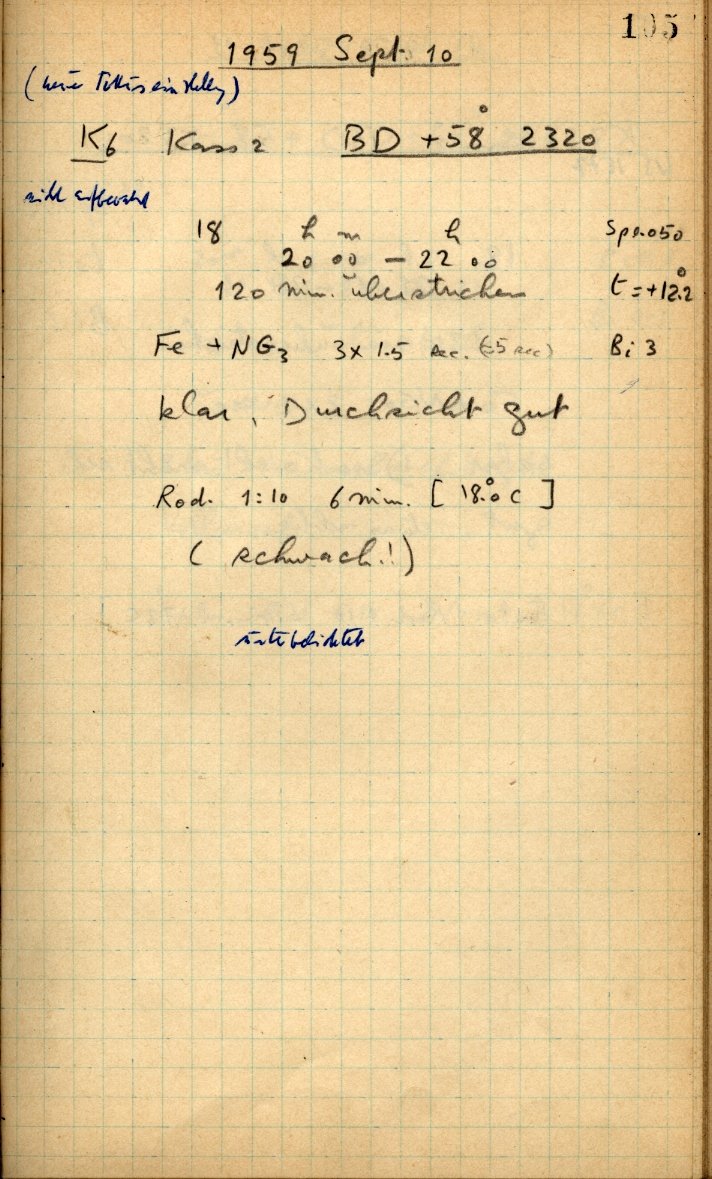 105
1959 Sept. 10
(neue
K6 Kass 2 BD +58° 2320
nicht aufbewahrt
18 h m h Sp 0.050
20 00 – 22 00
120 min. überstrichen t = +12.°2
Fe + NG3 3 x 1.5 sec. (5 sec) Bi 3
klar, Durchsicht gut
Rod. 1:10 6 min. [18.°0 C]
(schwach!!)
unterbelichtet